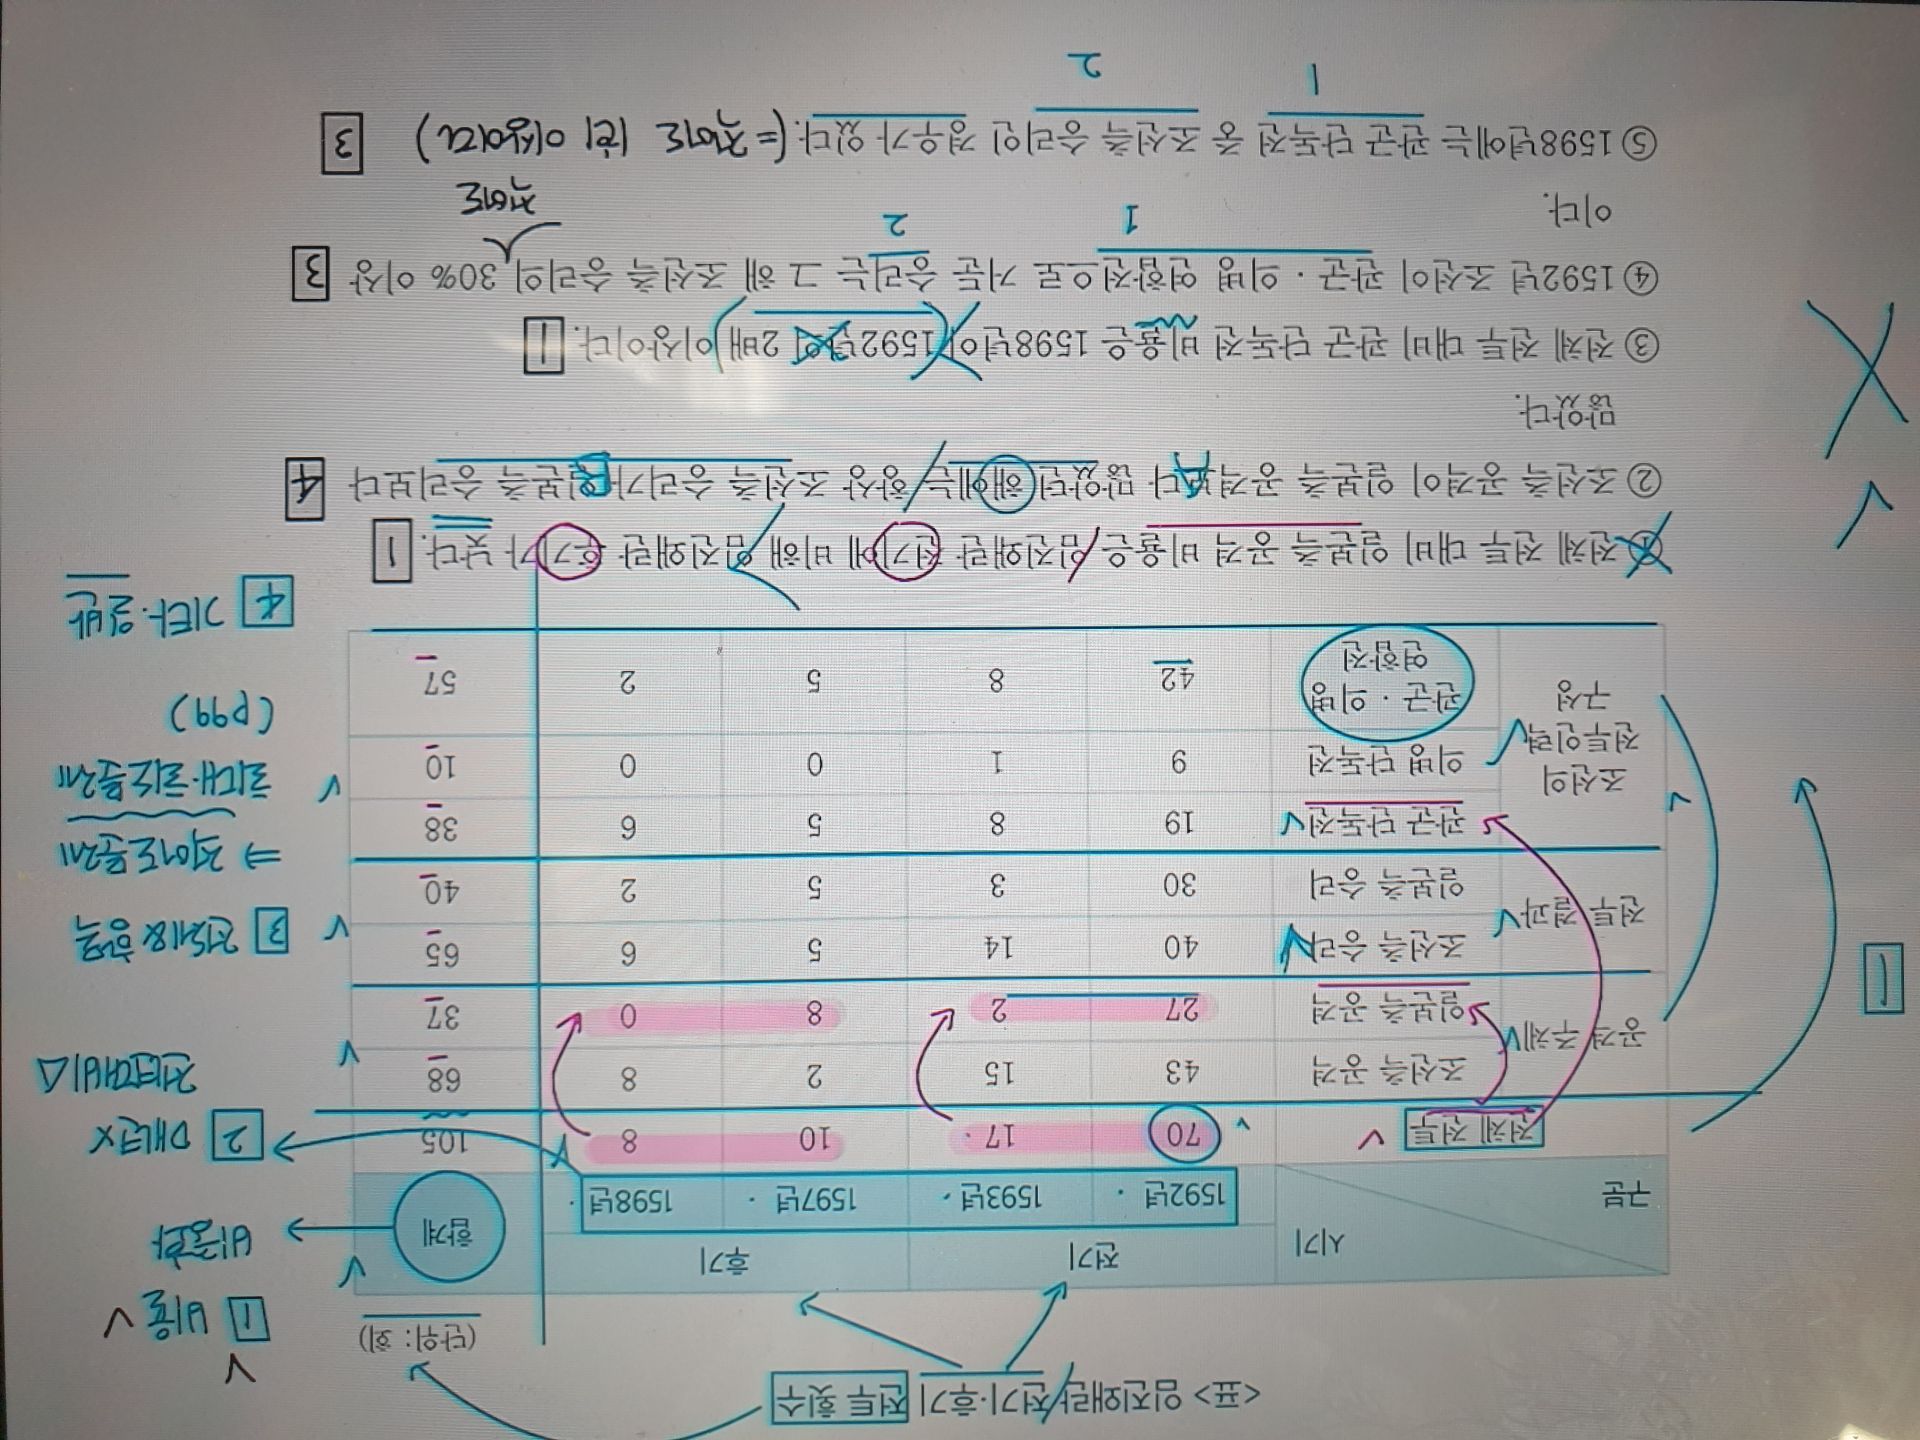 <표> 임진왜란 전기·후기 전투 횟수
(단위: 회)
1 비율 ✓
비율화
시기
구분
전기
후기
합계
1592년
1593년
1597년
1598년
2 매년X
전년대비△
전체 전투
70
17
10
8
105
공격 주체
조선측 공격
43
15
2
8
68
일본측 공격
27
2
8
0
37
1
3 전체&항목
⇒ 적어도 문제
최대·최소 문제
(p99)
전투 결과
조선측 승리
40
14
5
6
65
일본측 승리
30
3
5
2
40
조선의 전투인력 구성
관군 단독전
19
8
5
6
38
의병 단독전
9
1
0
0
10
관군·의병 연합전
42
8
5
2
57
4 기타·일반
① 전체 전투 대비 일본측 공격 비율은 임진왜란 전기에 비해 임진왜란 후기가 낮다. 1
② 조선측 공격이 일본측 공격보다 많았던 해에는 항상 조선측 승리가 일본측 승리보다 4
많았다.
③ 전체 전투 대비 관군 단독전 비율은 1598년이 1592년의 2배 이상이다. 1
④ 1592년 조선이 관군·의병 연합전으로 거둔 승리는 그 해 조선측 승리의 30% 이상 3
이다.
1
2
적어도
⑤ 1598년에는 관군 단독전 중 조선측 승리인 경우가 있다. (= 적어도 1회 이상이다) 3
1
2